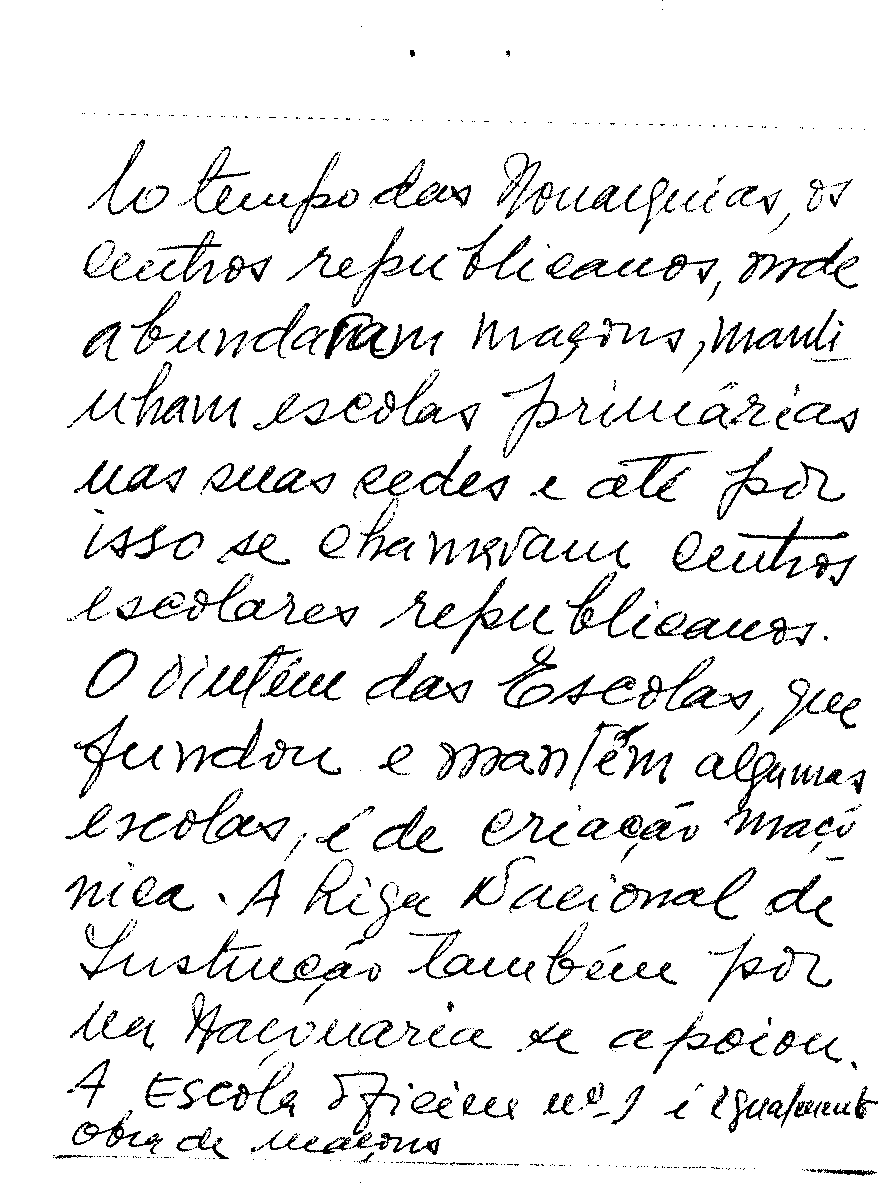 No tempo das Monarquias, os
centros republicanos, onde
abundaram maçons, manti
nham escolas primárias
nas suas sedes e até por
isso se chamavam centros
escolares republicanos.
O Vintém das Escolas, que
fundou e mantém algumas
escolas, é de criação maçó
nica. A Liga Nacional de
Instrução também por
na Maçonaria se apoiou.
A Escola Oficina nº 1 é igualmente
obra de maçons